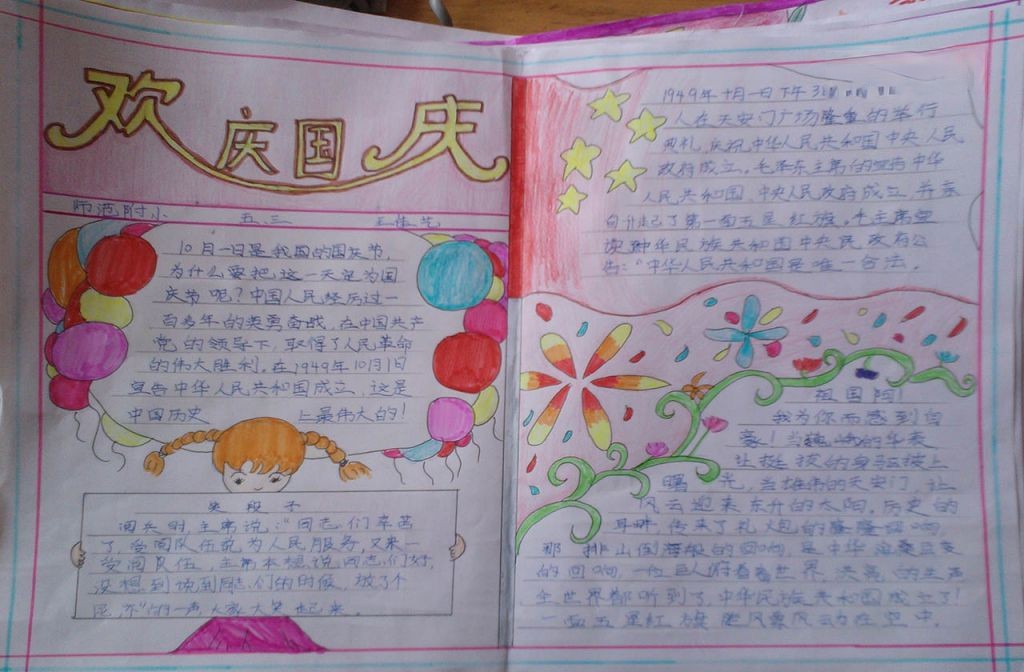 欢庆国庆
师范附小 五.三
10月一日是我国的国庆节,
为什么要把这一天定为国
庆节呢?中国人民经历过一
百多年的英勇奋战,在中国共产
党的领导下,取得了人民革命
的伟大胜利。在1949年10月1日
宣告中华人民共和国成立,这是
中国历史 上最伟大的!
笑段子
阅兵时主席说:"同志们辛苦
了,受阅队伍说为人民服务,又来一
受阅队伍,主席本想说同志们好,
没想到说到同志们的时候,放了个
屁,"的一声,大家大笑起来.
1949年十月一日下午3
人在天安门广场隆重的举行
典礼,庆祝中华人民共和国中央人民
政府成立。毛泽东主席的宣告中华
人民共和国,中央人民政府成立,并亲
自升起了第一面五星红旗。毛主席宣
读中华民族共和国中央民政府公
告:"中华人民共和国是唯一合法。
祖国阿!
我为你而感到自
豪!当巍峨的华表
让挺拔的身躯披上
曙光,当雄伟的天安门,让
风云迎来东升的太阳,历史的
耳畔,传来了礼炮的隆隆响,
那排山倒海般的回响,是中华沧桑巨变
的回响,一位巨人俯看着世界,洪亮的生声
全世界都听到了,中华民族共和国成立了!
一面五星红旗 风 在空中.